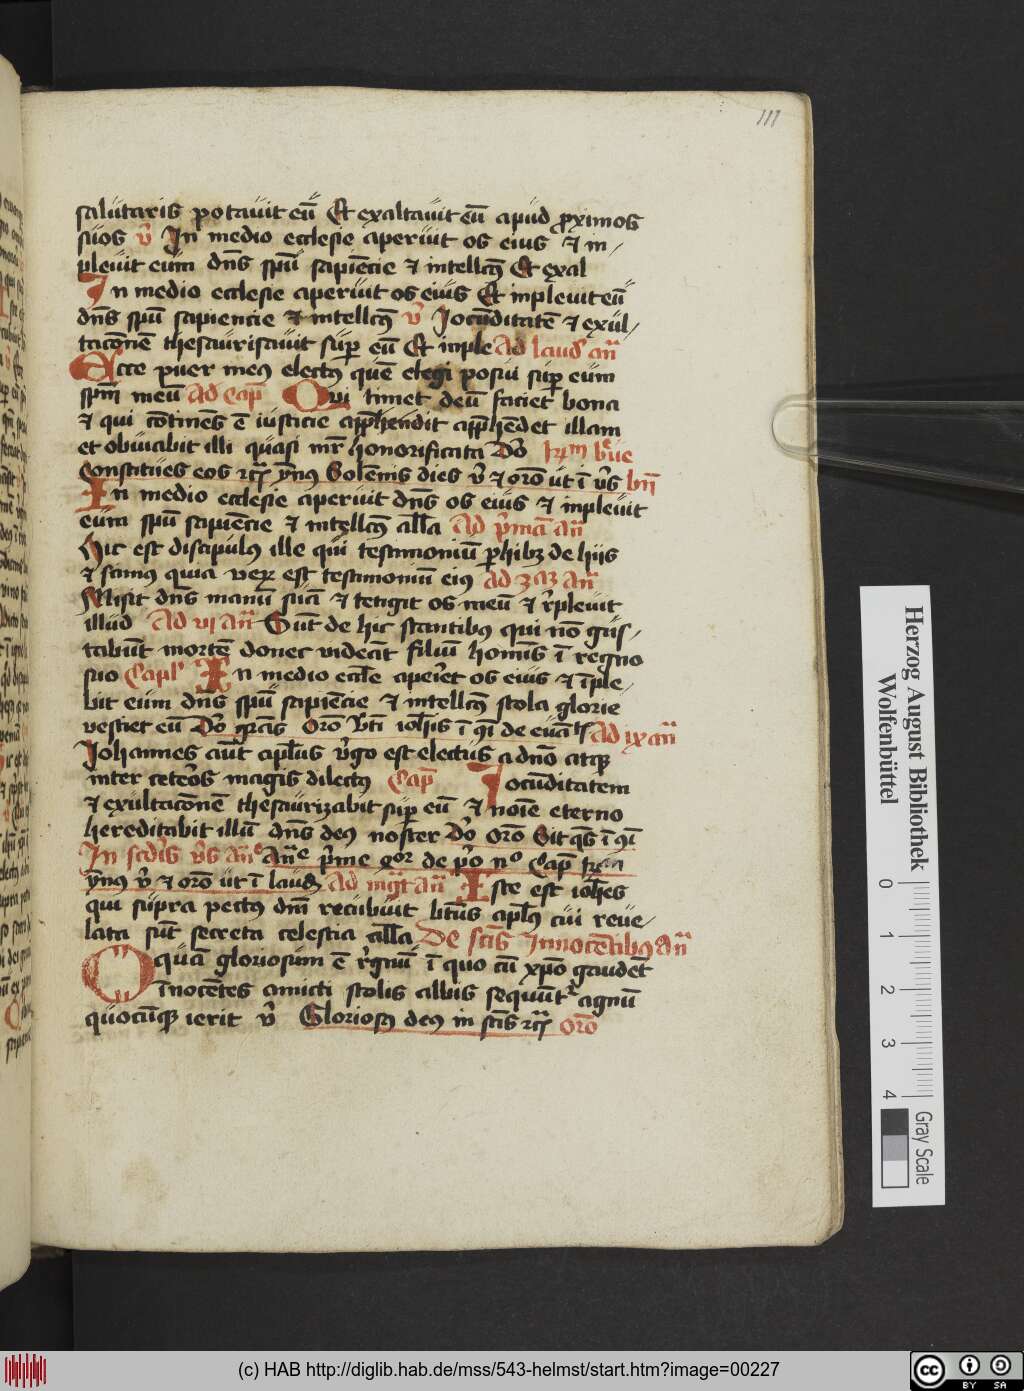 111
salutaris potauit eū Et exaltauit eū apud ꝓximos
suos v̄ In medio ecclesie aperuit os eius ⁊ in
pleuit eum dn̄s spū sapiēcie ⁊ intellcꝰ Et exal
In medio ecclesie aperuit os eius Et inpleuit eū
dn̄s spū sapiencie ⁊ intellcꝰ v̄ Jocūditatē ⁊ exul
tacōnē thesaurisauit suꝑ eū Et inple Ad laud an̄
Ecce puer meꝰ electꝰ quē elegi posui suꝑ eum
spm̄ meū Ad cap̄ Qui timet deū faciet bona
⁊ qui cōtinēs ē iusticie apphendit apphēdet illam
et obuiabit illi quasi mr̄ honorificata Do
Constitues eos ympnꝰ Solēnis dies v̄ ⁊ orō ut ī v̄s bn̄
In medio ecclesie aperuit dn̄s os eius ⁊ inpleuit
eum spū sapiēcie ⁊ intellcꝰ alla Ad p̄mā an̄
Hic est discipulꝰ ille qui testimoniū ꝑhibꝫ de hiis
⁊ scimꝰ quia veꝝ est testimoniū eiꝰ ad 3am an̄
Misit dn̄s manū suā ⁊ tetigit os meū ⁊ r̄pleuit
illud Ad vi an̄ Sūt de hic stantibꝰ qui nō gus
tabūt mortē donec videāt filiū homīs ī regno
suo Capl̄ In medio eccl̄e aperiet os eius ⁊ īple
bit eum dn̄s spū sapiēcie ⁊ intellcꝰ stola glorie
vestiet eū Do gracīs Orō de euā Ad ix an̄
Johannes aut apl̄us v̄go est electus a dn̄o atqꝫ
inter ceteros magis dilectꝰ Cap̄ Jocūditatem
⁊ exultacōnē thesaurizabit suꝑ eū ⁊ noīe eterno
hereditabit illū dn̄s deꝰ noster Do Orō Sit
In scd̄is v̄s an̄ An̄e p̄me de Cap̄
ympnꝰ v̄ ⁊ orō ut ī laud Ad mgt an̄ Iste est ioħes
qui supra pectꝰ dn̄i recubuit bt̄us apl̄ꝰ cui reue
lata sūt secreta celestia alla De scīs Innocētibꝰ an̄
O quā gloriosum ē r̄gnū ī quo cū xp̄o gaudēt
īnocētes amicti stolis albis sequūtr agnū
quocūqꝫ ierit v̄ Gloriosꝰ deꝰ in scīs orō
Herzog August Bibliothek
Wolfenbüttel
0 1 2 3 4
Gray Scale
(c) HAB http://diglib.hab.de/mss/543-helmst/start.htm?image=00227
cc BY SA